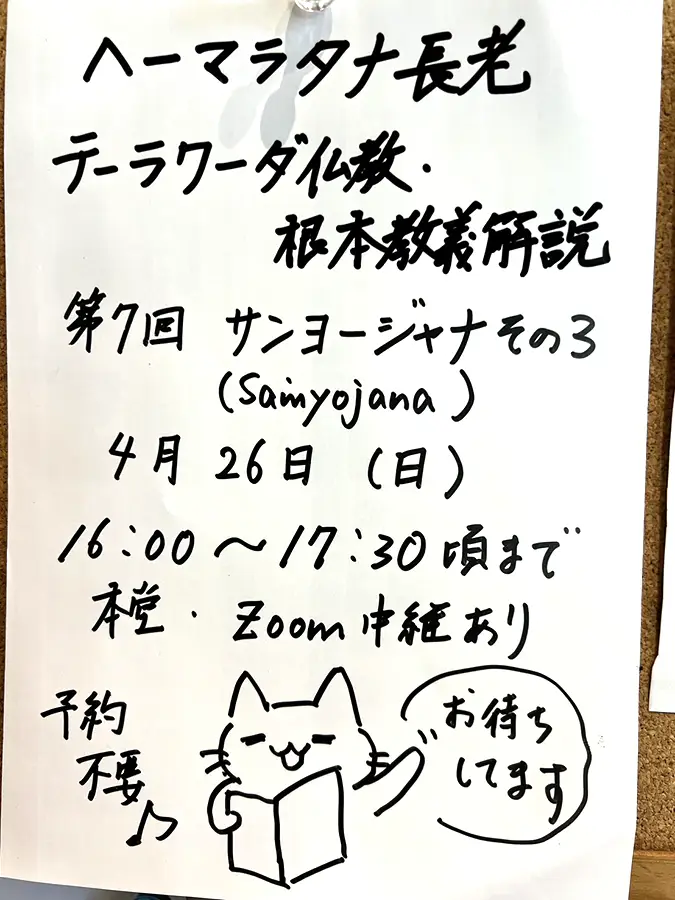 ヘーマラタナ長老
テーラワーダ仏教・
根本教義解説
第7回 サンヨージャナその3
(Saṁyojana)
4月26日(日)
16:00〜17:30頃まで
本堂・Zoom中継あり
予約
不要♪
お待ち
してます